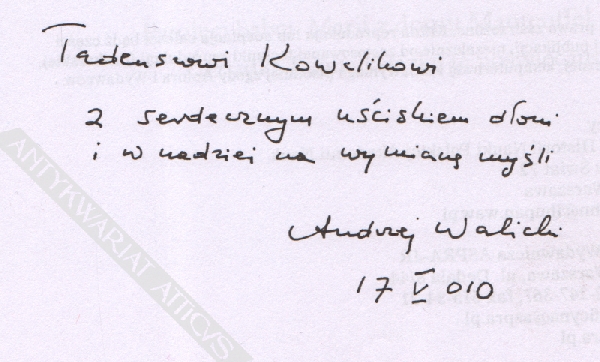 Tadeuszowi Kowalikowi
z serdecznym uściskiem dłoni
i w nadziei na wymianę myśli
Andrzej Walicki
17 V 010
ANTYKWARIAT ATTICUS